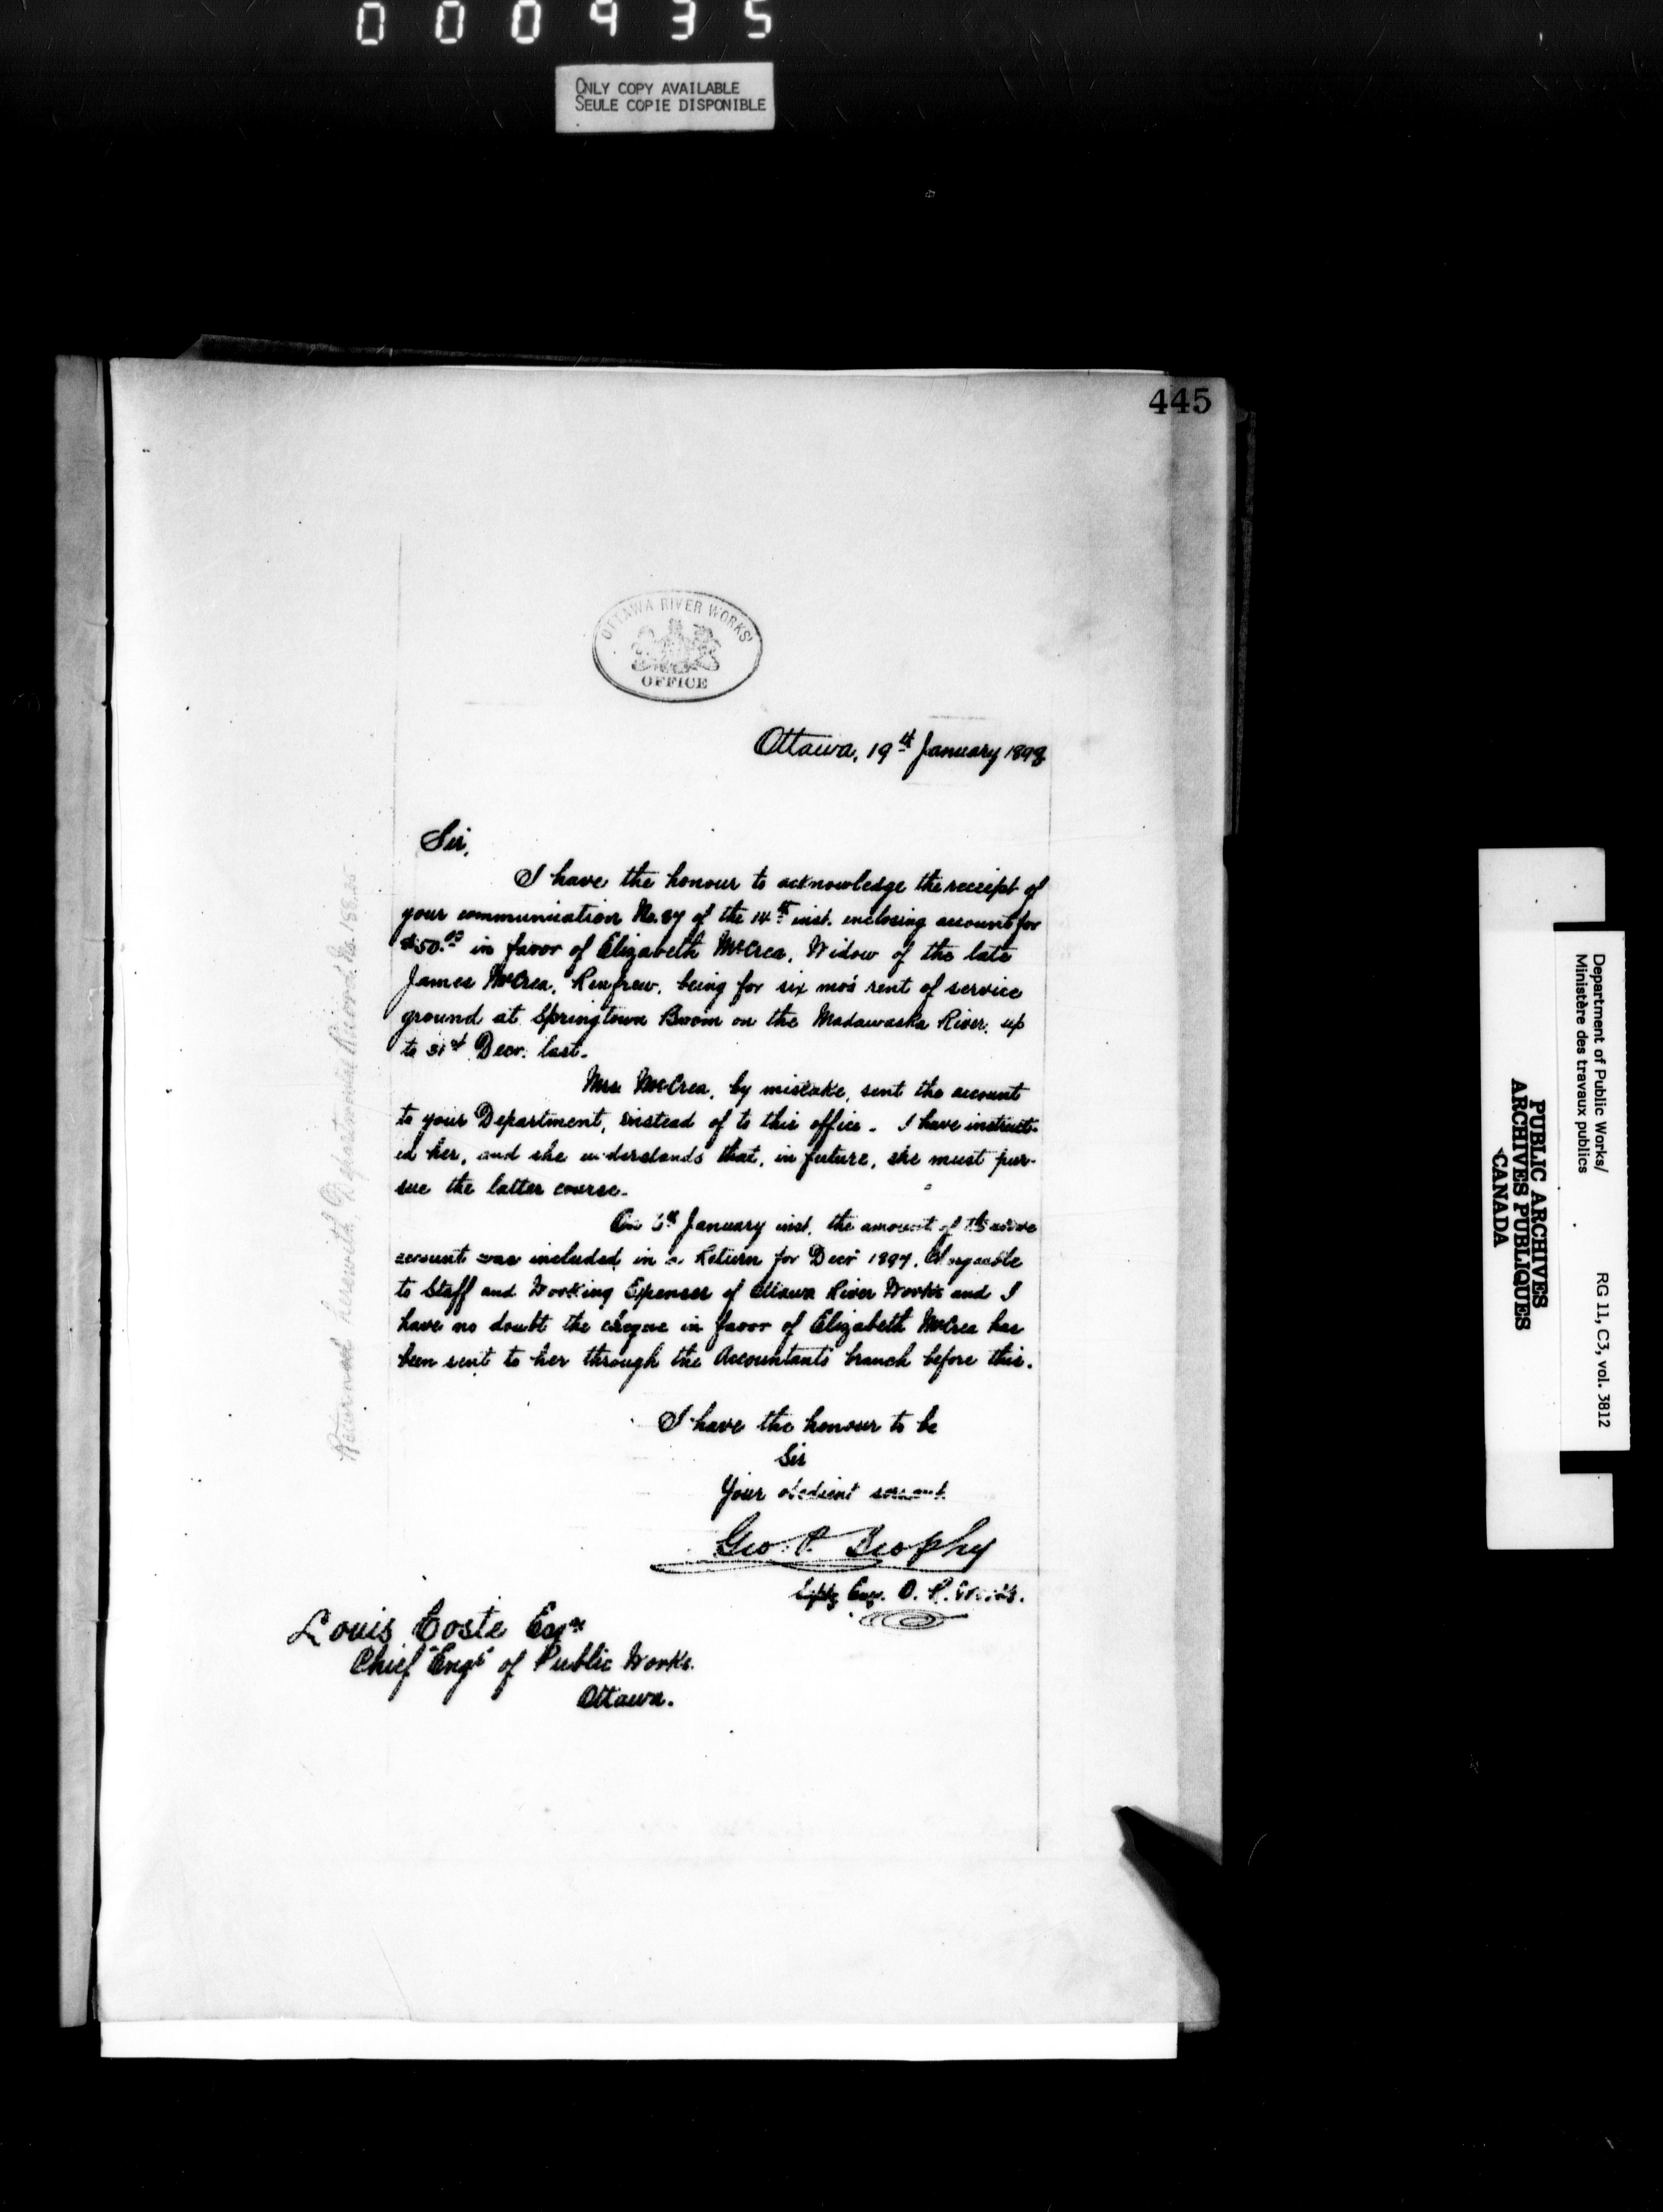 000935
ONLY COPY AVAILABLE
SEULE COPIE DISPONIBLE
445
OTTAWA RIVER WORKS
OFFICE
Ottawa, 19th January 1898
Sir,
I have the honour to acknowledge the receipt of
your communication No. 87 of the 14th inst. enclosing account for
$50.00 in favor of Elizabeth McCrea, Widow of the late
James McCrea, Renfrew, being for six mos rent of service
ground at Springtown Boom on the Madawaska River, up
to 31st Decr. last.
Mrs McCrea, by mistake, sent the account
to your Department, instead of to this office. I have instruct-
ed her, and she understands that, in future, she must pur-
sue the latter course.
On 6th January inst. the amount of the above
account was included in a Return for Decr 1897, Chargeable
to Staff and Working Expenses of Ottawa River Works and I
have no doubt the cheque in favor of Elizabeth McCrea has
been sent to her through the Accountants branch before this.
I have the honour to be
Sir
Your obedient servant
Geo. P. Brophy
Eng. O. R. Works.
Louis Coste Esqre
Chief Engr of Public Works.
Ottawa.
Returned herewith, Departmental Record No. 188.25
Department of Public Works/
Ministère des travaux publics
RG 11, C3, vol. 3812
PUBLIC ARCHIVES
ARCHIVES PUBLIQUES
CANADA